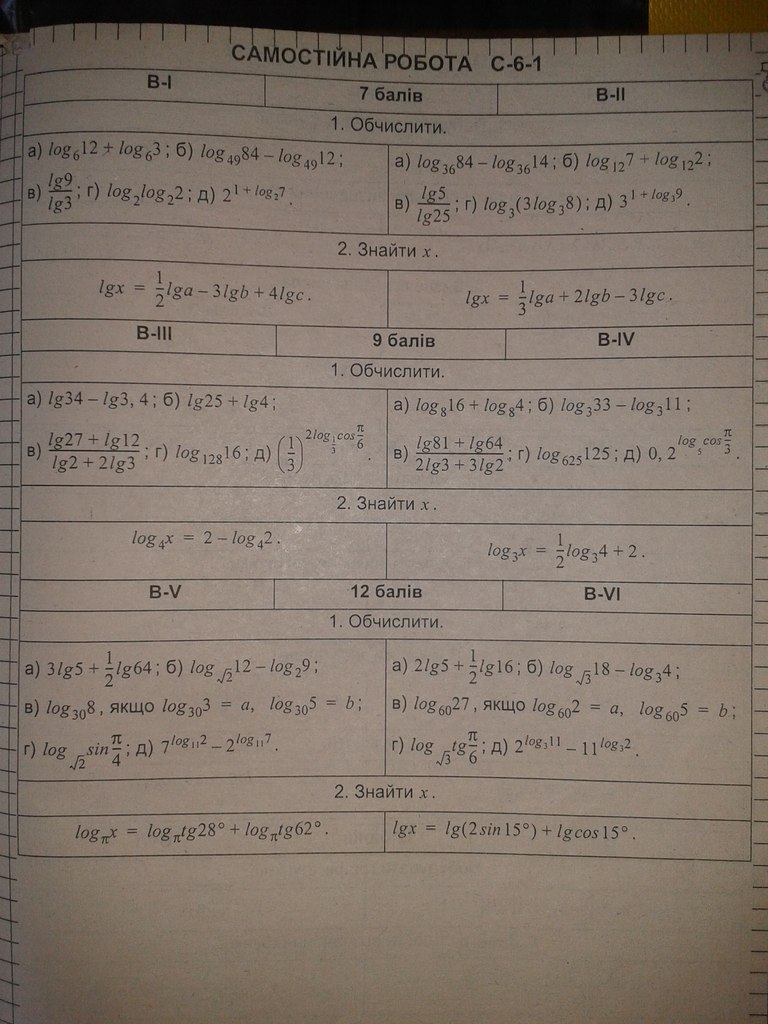 САМОСТІЙНА РОБОТА С-6-1
В-І 7 балів В-ІІ
1. Обчислити.
а) log₆12 + log₆3; б) log₄₉84 – log₄₉12;
в) lg9/lg3; г) log₂log₂2; д) 2^(1 + log₂7).
а) log₃₆84 – log₃₆14; б) log₁₂7 + log₁₂2;
в) lg5/lg25; г) log₃(3log₃8); д) 3^(1 + log₃9).
2. Знайти x.
lgx = 1/2 lga – 3lgb + 4lgc.
lgx = 1/3 lga + 2lgb – 3lgc.
В-ІІІ 9 балів В-IV
1. Обчислити.
а) lg34 – lg3, 4; б) lg25 + lg4;
в) (lg27 + lg12)/(lg2 + 2lg3); г) log₁₂₈16; д) (1/3)^(2log_(1/3) cos π/6).
а) log₈16 + log₈4; б) log₃33 – log₃11;
в) (lg81 + lg64)/(2lg3 + 3lg2); г) log₆₂₅125; д) 0, 2^(log₅ cos π/3).
2. Знайти x.
log₄x = 2 – log₄2.
log₃x = 1/2 log₃4 + 2.
В-V 12 балів В-VI
1. Обчислити.
а) 3lg5 + 1/2 lg64; б) log_√2 12 – log₂9;
в) log₃₀8, якщо log₃₀3 = a, log₃₀5 = b;
г) log_√2 sin π/4; д) 7^(log₁₁2) – 2^(log₁₁7).
а) 2lg5 + 1/2 lg16; б) log_√3 18 – log₃4;
в) log₆₀27, якщо log₆₀2 = a, log₆₀5 = b;
г) log_√3 tg π/6; д) 2^(log₃11) – 11^(log₃2).
2. Знайти x.
log_π x = log_π tg28° + log_π tg62°.
lgx = lg(2sin15°) + lgcos15°.